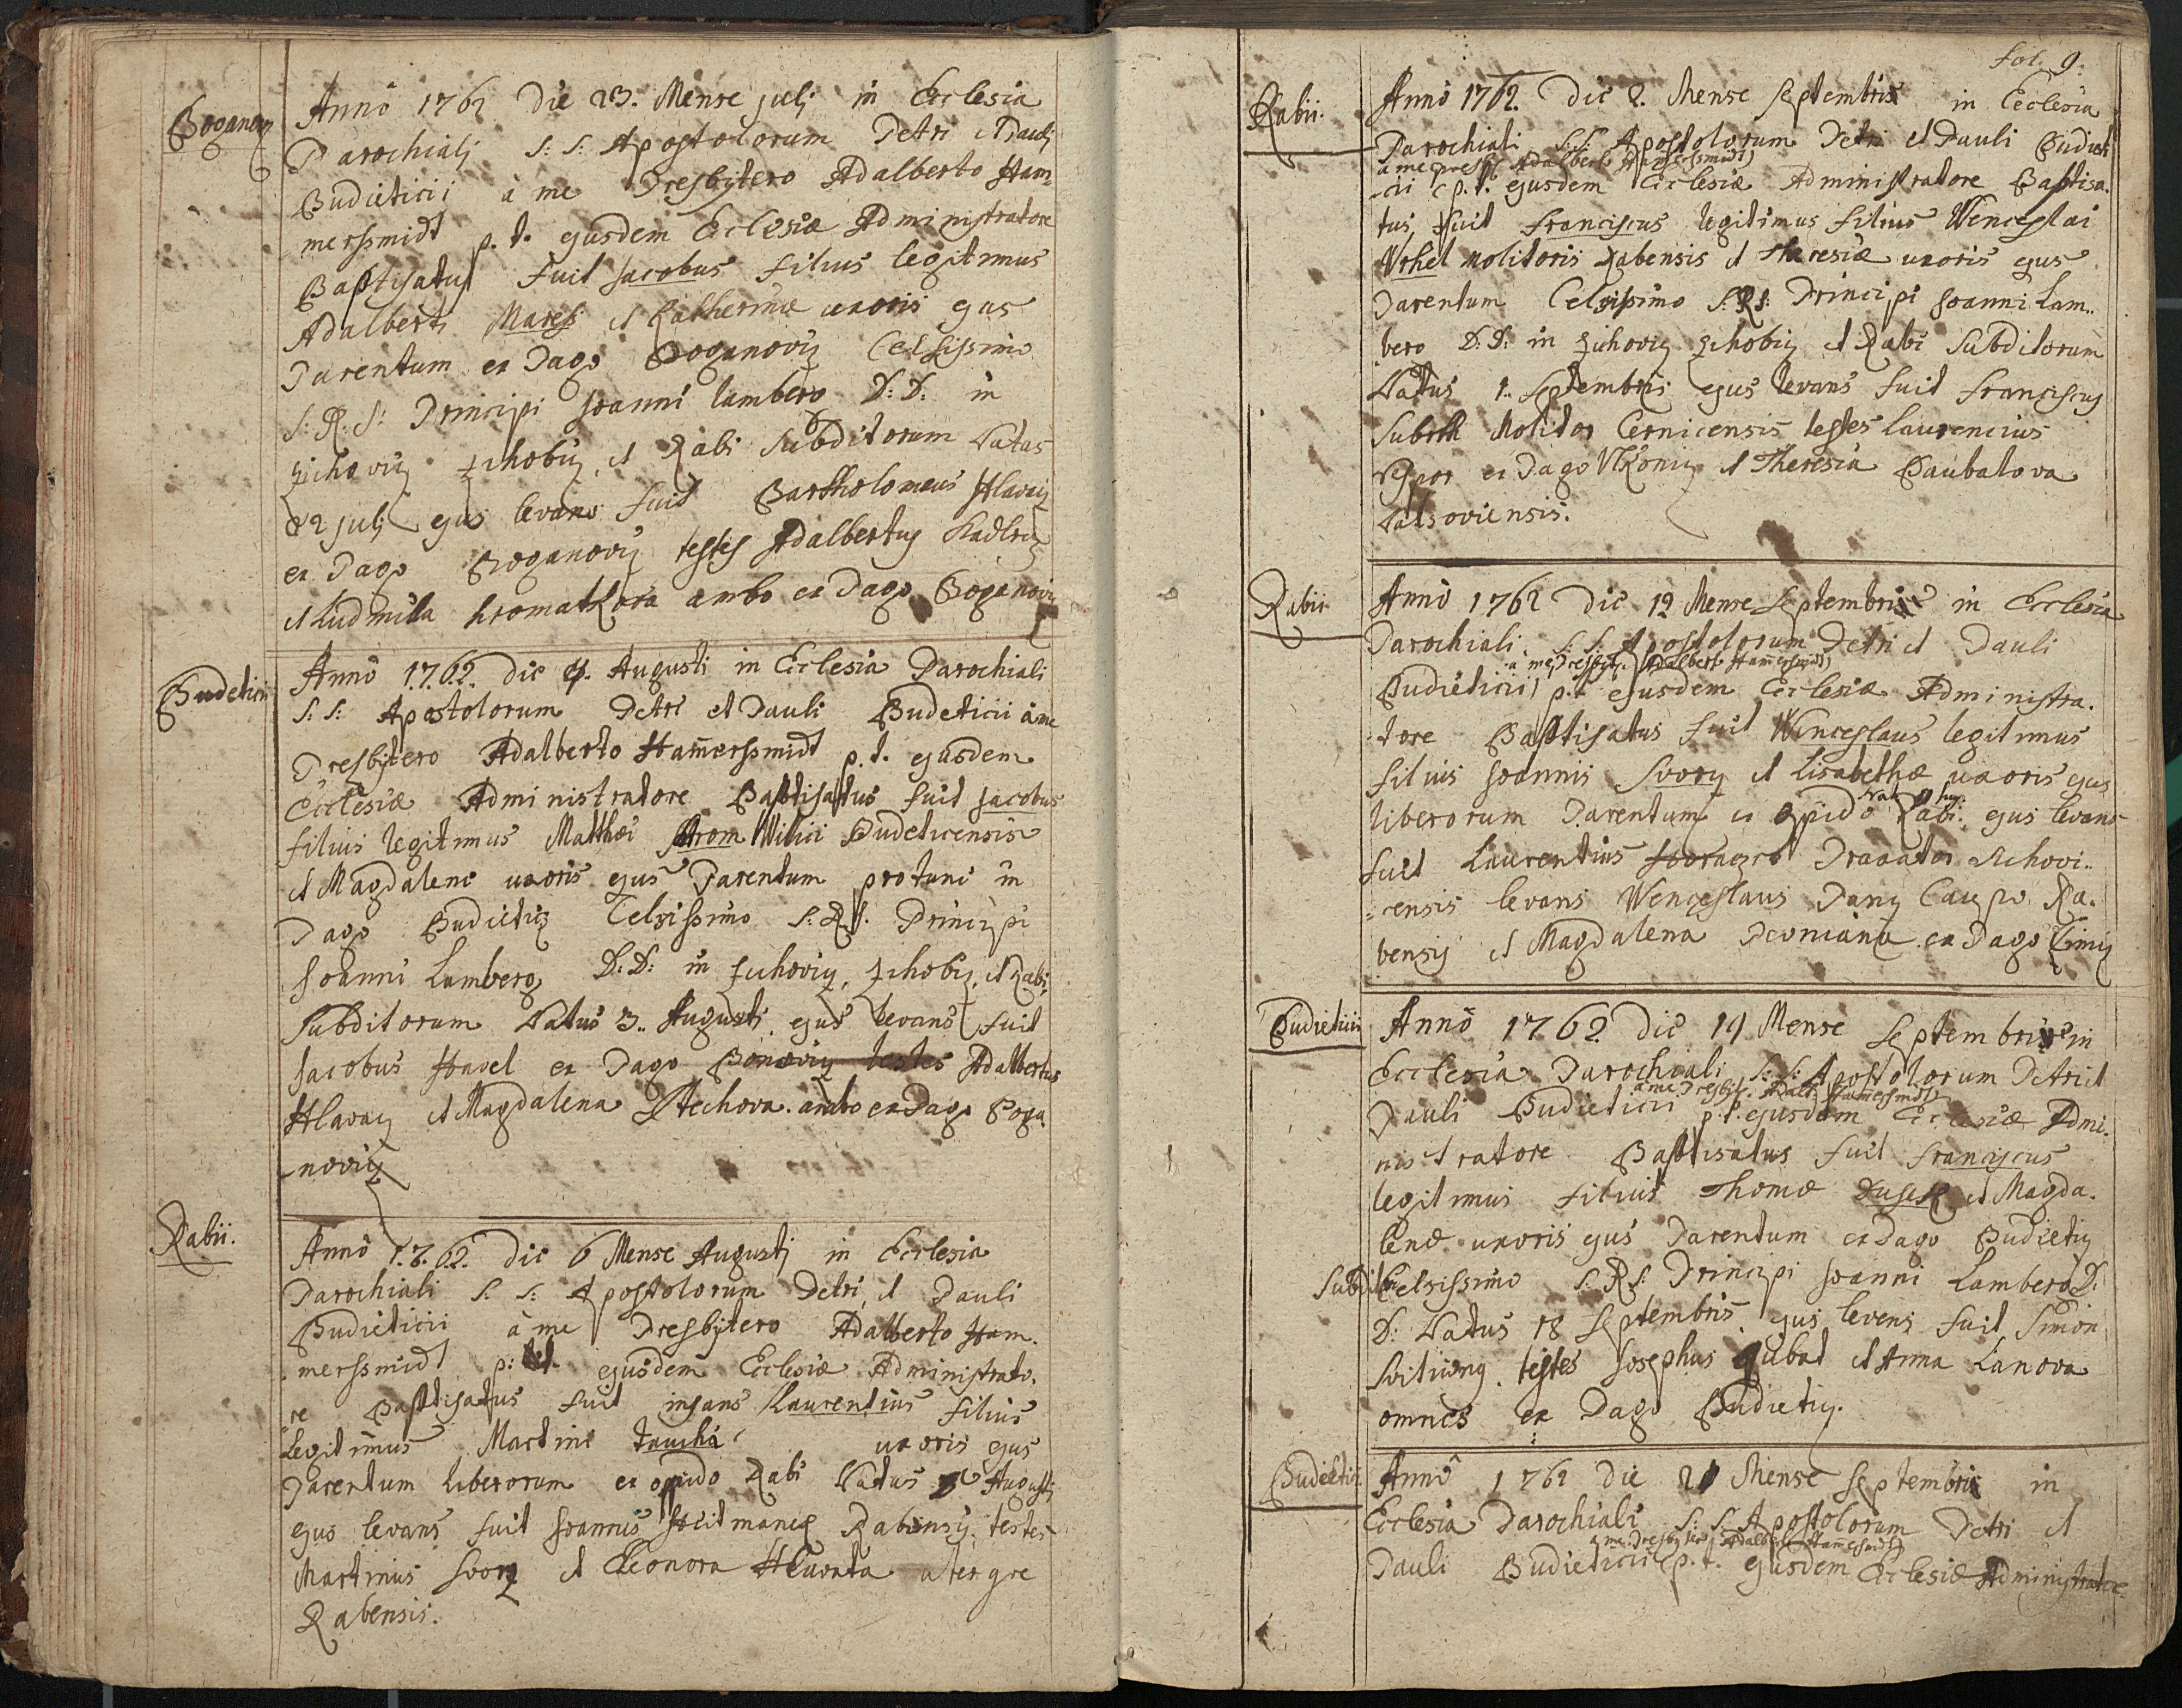 Boganov
Anno 1762 Die 23. Mense Julj in Ecclesia
Parochialj S: S: Apostolorum Petri et Paulj
Budieticii à me Presbytero Adalberto Ham
merssmidt p. t. ejusdem Ecclesiæ Administratore
Baptisatus Fuit Jacobus filius legitimus
Adalberti Maress et Katherinæ uxoris ejus
Parentum ex Pago Boganoviz Celsissimo
S: R: J: Principi Joanni Lamberg D: D: in
Zichoviz Zihobiz, et Rabi Subditorum Natus
22 Julj ejus levans fuit Bartholomeus Hlavaz
ex Pago Boganoviz testes Adalbertus Kadlez
et Ludmila hromatkova ambo ex Pago Boganoviz
Budeticii
Anno 1762. die 4. Augusti in Ecclesia Parochiali
S: S: Apostolorum Petri et Pauli Budeticii à me
Presbytero Adalberto Ham̄erssmidt p. t. ejusdem
Ecclesiæ Administratore Baptisatus fuit Jacobus
filius legitimus Matthæi Strom Budeticensis
et Magdalene uxoris ejus Parentum protunc in
Pago Budietiz Celsissimo S: R: J. Principi
Joanni Lamberg D: D: in Zichoviz, Zihobiz, et Rabi,
Subditorum Natus 3.. Augusti ejus levans fuit
Jacobus Havel ex Pago Bonoviz testes Adalbertus
Hlavaz et Magdalena ambo ex Pago Boga
noviz
Rabii.
Anno 1762. die 6 Mense Augustj in Ecclesia
Parochiali S: S: Apostolorum Petri et Pauli
Budieticii à me Presbytero Adalberto Ham.
merssmidt p: t. ejusdem Ecclesiæ Administrato.
re Baptisatus fuit infans Laurentius filius
Legitimus Martini Taucha uxoris ejus
Parentum liberorum ex opido Rabi Natus Augusti
ejus levans fuit Joannes Rabensis, testes
Martinus Svorz et Eleonora Hlavata uterque
Rabensis.
fol. 9.
Rabii.
Anno 1762. die 2. Mense Septembris in Ecclesia
Parochiali S: S: Apostolorum Petri et Pauli Budieti
à me Presb. Adalberto Hammerssmidt
cii p. t. ejusdem Ecclesiæ Administratore Baptisa.
tus, fuit Franciscus legitimus filius Wenceslai
Vrhel Molitoris Rabensis et Theresiæ uxoris ejus
Parentum Celsissimo S: R: J: Principi Joanni Lam..
berg D: D: in Zichoviz Zihobiz et Rabi Subditorum
Natus 1.. Septembris ejus levans fuit Franciscus
Molitor Cernicensis testes Laurencius
ex Pago et Theresia Paubalova

Rabii
Anno 1762 die 12 Mense Septembris in Ecclesia
Parochiali S: S: Apostolorum Petri et Pauli
à me Presbyt. Adalberto Ham̄erssmidt
Budieticii p. t. ejusdem Ecclesiæ Administra.
tore Baptisatus fuit Wenceslaus legitimus
filius Joannis Svorz et Lisabethæ uxoris ejus
liberorum Parentum ex opido Rabi: ejus levans
fuit Laurentius Zichovi..
censis levans Wenceslaus Panz Caupo Ra.
bensis et Magdalena ex Pago Cimiz
Budieticii
Anno 1762 die 19 Mense Septembris in
Ecclesia Parochiali S: S: Apostolorum Petri et
à me Presbyt. Adalb. Ham̄erssmidt
Pauli Budieticii p. t. ejusdem Ecclesiæ Admi.
nistratore Baptisatus fuit Franciscus
legitimus filius Thomæ Dusek et Magda.
lenæ uxoris ejus Parentum ex Pago Budietiz
Subdit Celsissimo S: R: J: Principi Joanni Lamberg D:
D: Natus 18 Septembris ejus levens fuit Simon
testes Josephus et Anna Lanova
omnes ex Pago Budietiz.
Budieticii
Anno 1762 die 21 Mense Septembris in
Ecclesia Parochiali S: S: Apostolorum Petri et
à me Presbytero Adalberto Ham̄erssmidt
Pauli Budieticii p. t. ejusdem Ecclesiæ Administratore